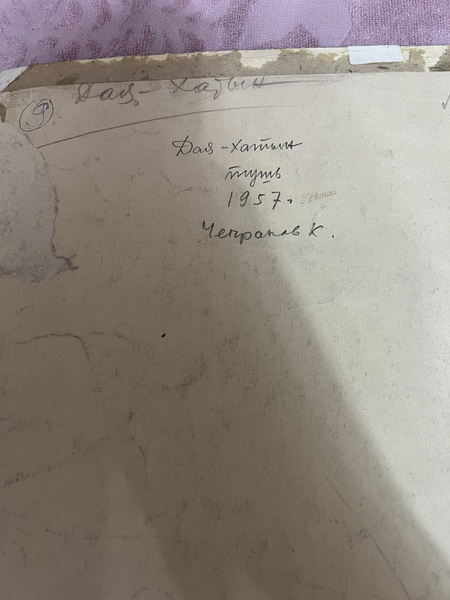 9 Дая-Хатын
Дая-хатын
тушь
1957г.
Чепраков К.